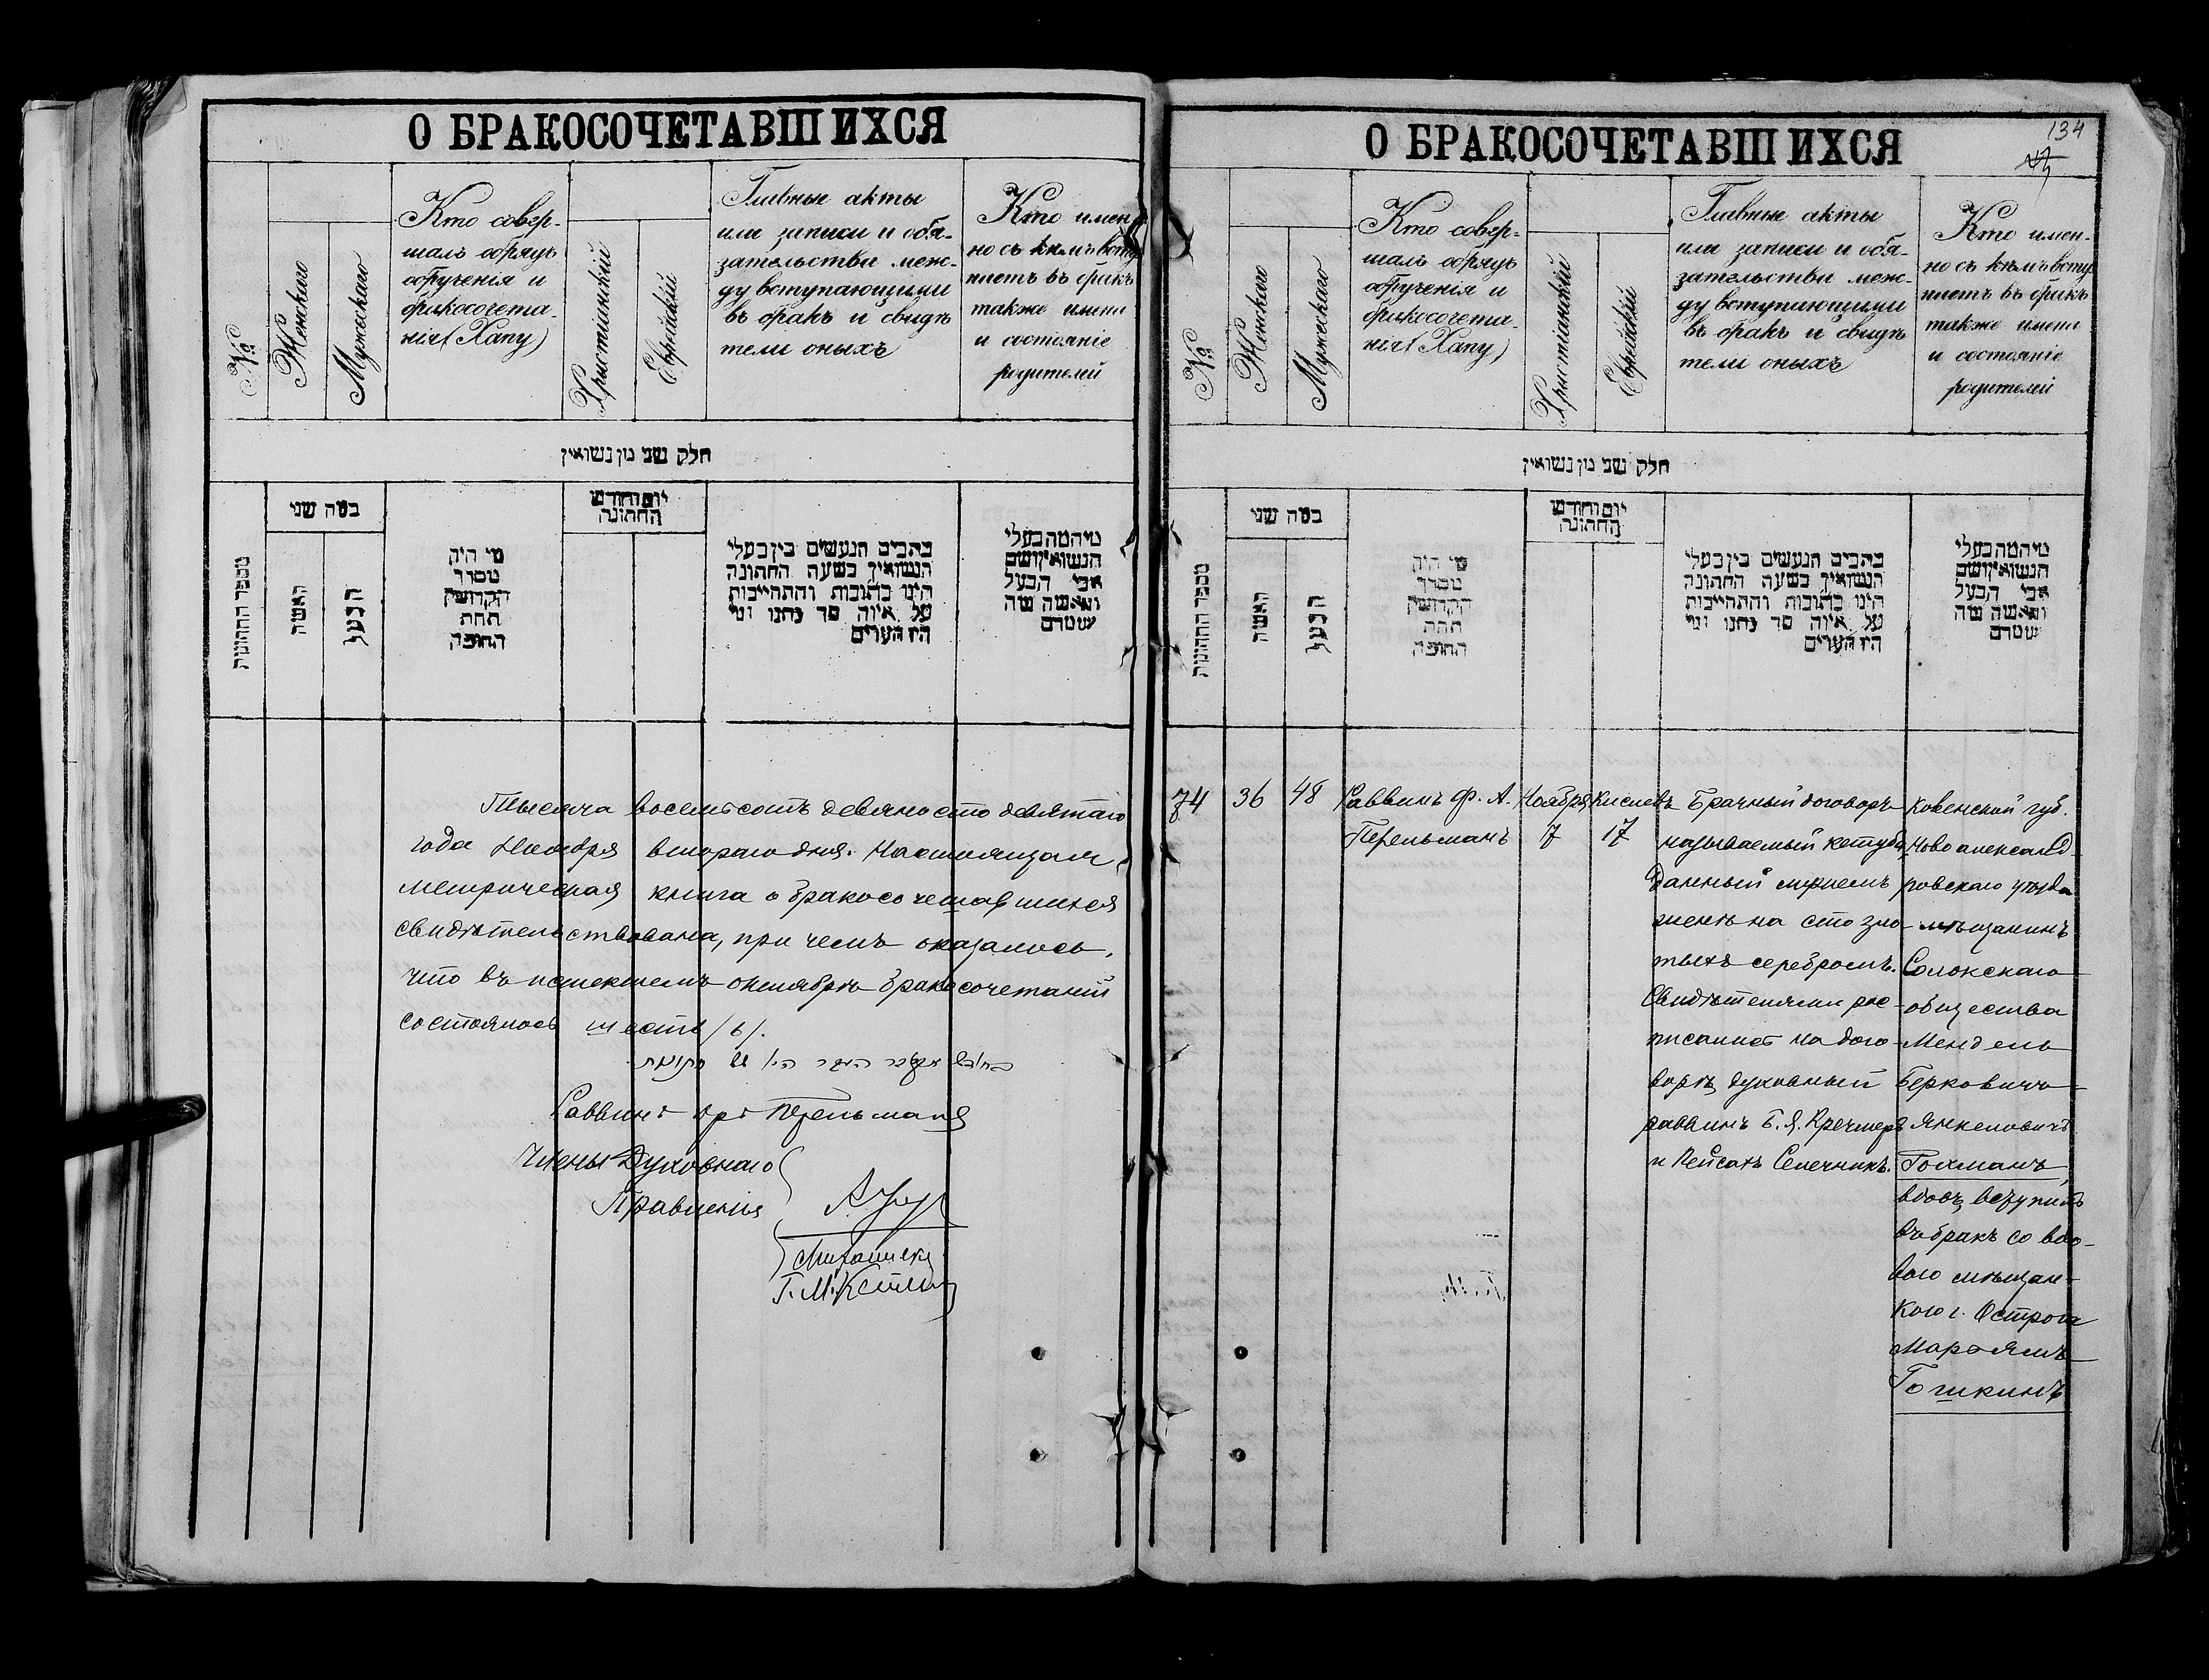 О БРАКОСОЧЕТАВШИХСЯ
№
Женскаго
Мужескаго
Кто совер-
шалъ обрядъ
обрученія и
бракосочета-
нія (Хапу)
Христіанскій
Еврейскій
Главные акты
или записи и обя-
зательства меж-
ду вступающими
въ бракъ и свидѣ
тели оныхъ
Кто имен-
но съ кѣмъ всту
паетъ въ бракъ
также имена
и состояніе
родителей
חלק שני מן נשואין
מספר החתונות
כמה שני
האשה
הבעל
מי היה
מסדר
הקדושין
תחת
החופה
יום וחודש
החתונה
כתבים הנעשים בין בעלי
הנשואין בשעה החתונה
היינו כתובות והתחייבות
על איזה סך נתנו ומי
היו העדים
מי המה בעלי
הנשואין ושם
אבי הבעל
והאשה מה
שטרם
Тысяча восемьсотъ девяносто девятаго
года Ноября втораго дня. Настоящая
метрическая книга о бракосочетавшихся
свидѣтельствована, при чемъ оказалось,
что въ истекшемъ октябрѣ бракосочетаній
состоялось шесть /6/.
Раввинъ Перельманъ
Члены Духовнаго
Правленія
О БРАКОСОЧЕТАВШИХСЯ
134
№
Женскаго
Мужескаго
Кто совер-
шалъ обрядъ
обрученія и
бракосочета-
нія (Хапу)
Христіанскій
Еврейскій
Главные акты
или записи и обя-
зательства меж-
ду вступающими
въ бракъ и свидѣ
тели оныхъ
Кто имен-
но съ кѣмъ всту
паетъ въ бракъ
также имена
и состояніе
родителей
חלק שני מן נשואין
מספר החתונות
כמה שני
האשה
הבעל
מי היה
מסדר
הקדושין
תחת
החופה
יום וחודש
החתונה
כתבים הנעשים בין בעלי
הנשואין בשעה החתונה
היינו כתובות והתחייבות
על איזה סך נתנו ומי
היו העדים
מי המה בעלי
הנשואין ושם
אבי הבעל
והאשה מה
שטרם
74
36
48
Раввинъ Ф. А.
Перельманъ
Ноября
7
Кислевъ
17
Брачный договоръ
называемый кетуба,
данный мужемъ
женѣ на сто зло-
тыхъ серебромъ.
Свидѣтелями рос-
писались на дого-
ворѣ духовный
раввинъ Б. Я. Кречмеръ
и Пейсахъ Селечникъ.
Ковенской губ.
Новоалександ-
ровскаго уѣзда
мѣщанинъ
Солокскаго
общества
Мендель
Берковичъ
Янкеловичъ
Гохманъ,
вдовъ, вступилъ
въ бракъ со вдо-
вою мѣщан-
кою г. Острога
Марьямъ
Гошкинъ